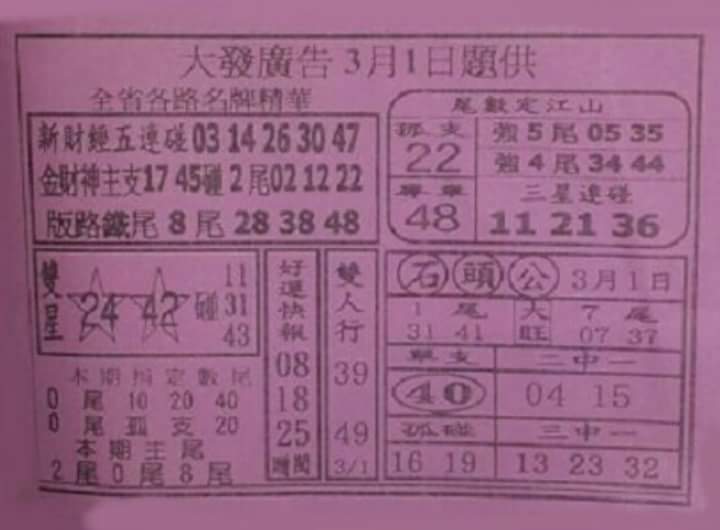 大發廣告 3月1日題供
全省各路名牌精華
新財經五連碰 03 14 26 30 47
金財神主支 17 45 碰 2 尾 02 12 22
版路鐵尾 8 尾 28 38 48
尾數定江山
孤支
22
強 5 尾 05 35
強 4 尾 34 44
48
三星連碰
11 21 36
雙星
24 42 碰
11
31
43
本期指定數尾
0 尾 10 20 40
0 尾孤支 20
本期主尾
2 尾 0 尾 8 尾
好運快報
08
18
25
雙人行
39
49
3/1
石頭公 3月1日
1 尾
31 41
大旺
7 尾
07 37
單支
40
二中一
04 15
孤碰
16 19
三中一
13 23 32